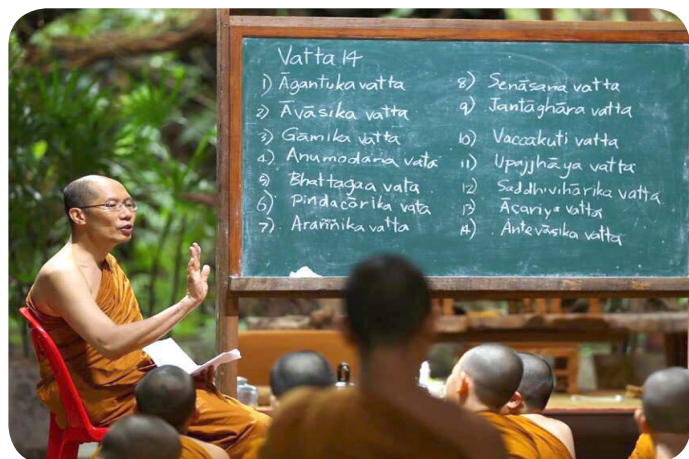 Vatta 14
1) Āgantuka vatta
2) Āvāsika vatta
3) Gāmika vatta
4) Anumodana vata
5) Bhattagaa vata
6) Pindacārika vata
7) Araññika vatta
8) Senāsana vatta
9) Jantāghāra vatta
10) Vaccakuti vatta
11) Upajjhāya vatta
12) Saddhivihārika vatta
13) Āçariya vatta
14) Antevāsika vatta